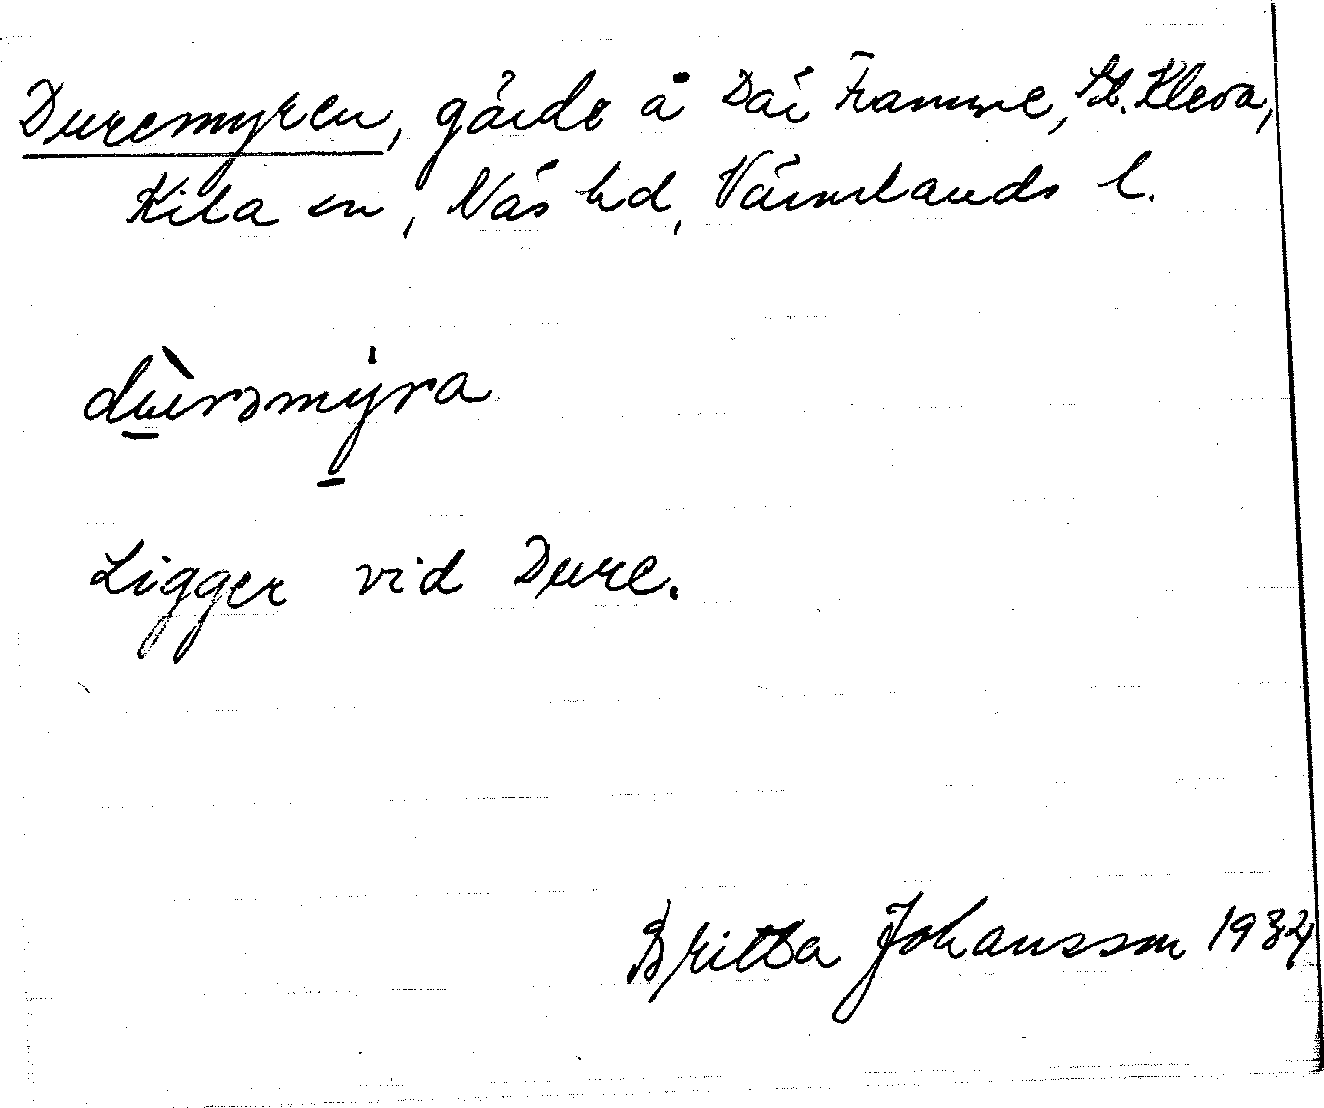 Duremyren, gärde å Där Framme, St. Kleva,
Kila sn, Näs hd, Värmlands l.
dùrəmýra
Ligger vid Dure.
Britta Johansson 1934